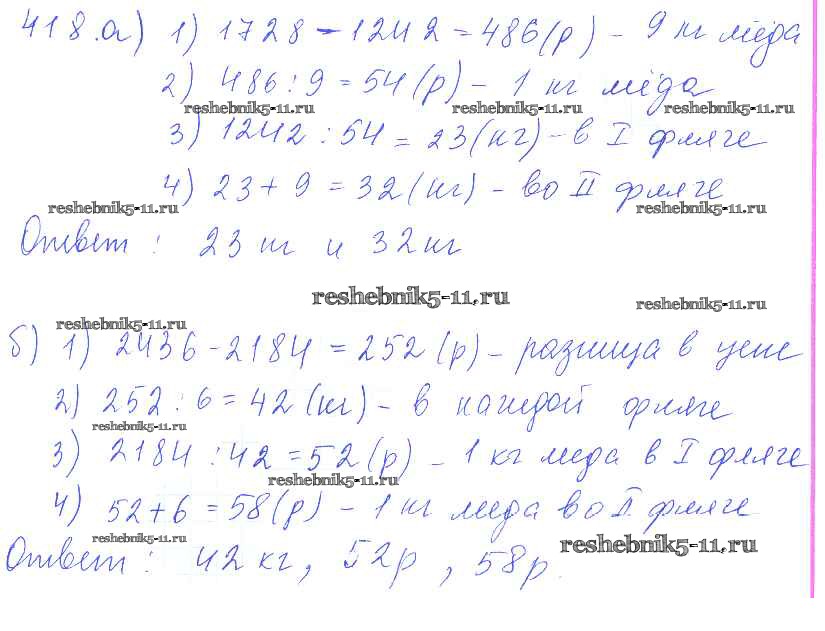 418.а) 1) 1728 - 1242 = 486(р) - 9 кг мёда
2) 486 : 9 = 54(р) - 1 кг мёда
reshebnik5-11.ru reshebnik5-11.ru reshebnik5-11.ru
3) 1242 : 54 = 23(кг) - в I фляге
4) 23 + 9 = 32(кг) - во II фляге
reshebnik5-11.ru reshebnik5-11.ru
Ответ : 23 кг и 32 кг
reshebnik5-11.ru
reshebnik5-11.ru
reshebnik5-11.ru
б) 1) 2436 - 2184 = 252(р) - разница в цене
2) 252 : 6 = 42(кг) - в каждой фляге
reshebnik5-11.ru
3) 2184 : 42 = 52(р) - 1 кг меда в I фляге
reshebnik5-11.ru
4) 52 + 6 = 58(р) - 1 кг меда во II фляге
reshebnik5-11.ru
reshebnik5-11.ru
Ответ : 42 кг, 52р, 58р.